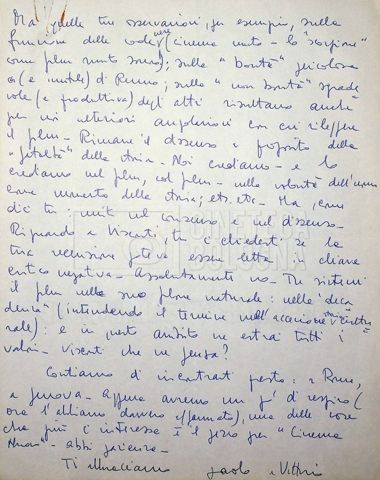 Ma quelle tue osservazioni, per esempio, sulla
funzione delle code nere (cinema muto - lo "scorpione"
come film muto sonoro); sulla "bontà" pericolosa
(e inutile) di Renno; sulla "non bontà"
(e produttiva) degli altri risultano anche
per noi ulteriori con cui rileggere
il film - Rimane il dissenso a proposito della
"fatalità" della storia - Noi crediamo - e lo
crediamo nel film, col film - nella volontà dell'uomo
come momento della storia; etc. etc. - Ma, come
dici tu: uniti nel consenso e nel dissenso -
Riguardo a Visconti, tu ci chiedevi se la
tua recensione poteva essere letta in chiave
critico negativa - Assolutamente no - Tu sistemi
il film nella suo filone naturale: nella "deca
denza" (intendendo il termine nell'accezione culturale):
e in questo ambito ne estrai tutti i
valori - Visconti che ne pensa?
Contiamo di incontrarti presto: a Roma,
a Genova - Appena avremo un po' di respiro (
ora l'abbiamo davvero), una delle cose
che più ci interessa è il pezzo per "Cinema
Nuovo" - abbi pazienza -
Ti abbracciamo paolo e Vittorio